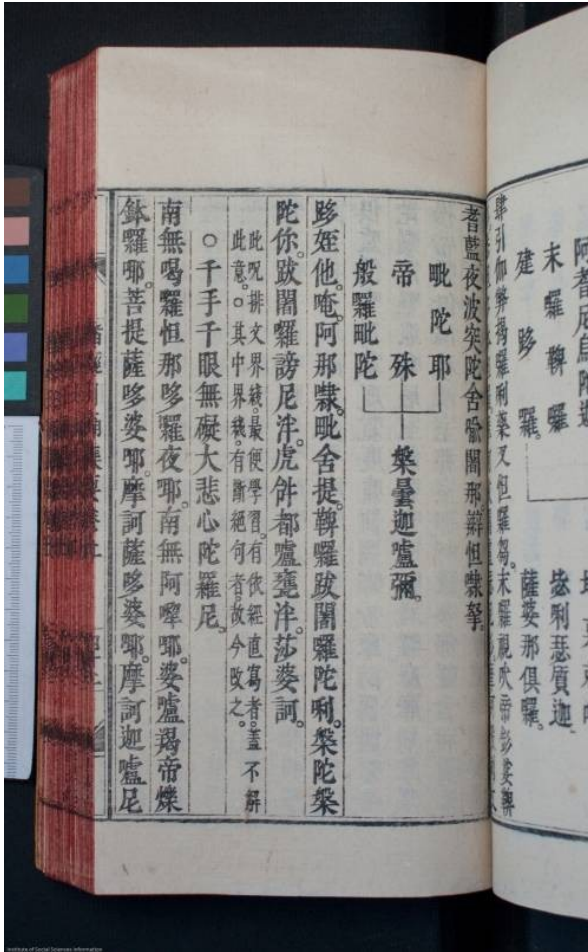 末羅鞞羅
建跢羅。
毖唎瑟質迦
薩婆那俱囉。
肆引伽弊揭羅唎藥叉怛羅芻。末羅視吠帝髟娑鞞
耆藍夜波突陀舍喻闍那辮怛隸拏。
毗陀耶
帝殊
般羅毗陀
槃曇迦嚧彌。
跢姪他。唵。阿那隸。毗舍提。鞞囉跋闍囉陀唎。槃陀槃
陀你。跋闍囉謗尼泮。虎𤙖都嚧甕泮。莎婆訶。
此呪排文界綫。最便學習。有依經直寫者。蓋不解
此意。○其中界綫。有斷絕句者。故今改之。
○千手千眼無礙大悲心陀羅尼。
南無喝囉怛那哆囉夜㖿。南無阿唎㖿。婆嚧羯帝爍
鉢囉㖿。菩提薩哆婆㖿。摩訶薩哆婆㖿。摩訶迦嚧尼
Institute of Social Sciences Information